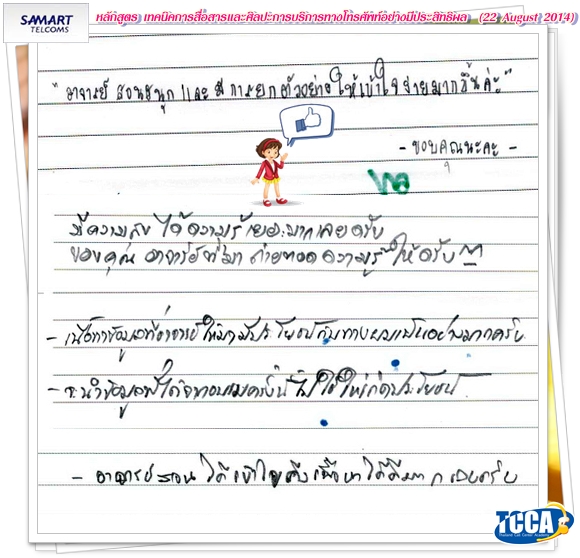 SAMART
TELCOMS
หลักสูตร เทคนิคการสื่อสารและศิลปะการบริการทางโทรศัพท์อย่างมีประสิทธิผล (22 August 2014)
"อาจารย์ สอนสนุก และ มี การยกตัวอย่าง ให้เข้าใจง่ายมากขึ้นค่ะ"
- ขอบคุณนะคะ -
มีความสุข ได้ความรู้เยอะมากเลยครับ
ขอบคุณ อาจารย์ที่มา ถ่ายทอด ความรู้ ให้ครับ
- เนื้อหาข้อมูลที่อาจารย์ให้มามีประโยชน์กับทางผมเป็นอย่างมากครับ
- จะนำข้อมูลที่ได้จากอบรมครั้งนี้ไปใช้ให้เกิดประโยชน์
- อาจารย์สอน ได้เข้าใจถึงเนื้อหาได้ดีมาก เลยครับ
TCCA
Thailand Call Center Academy